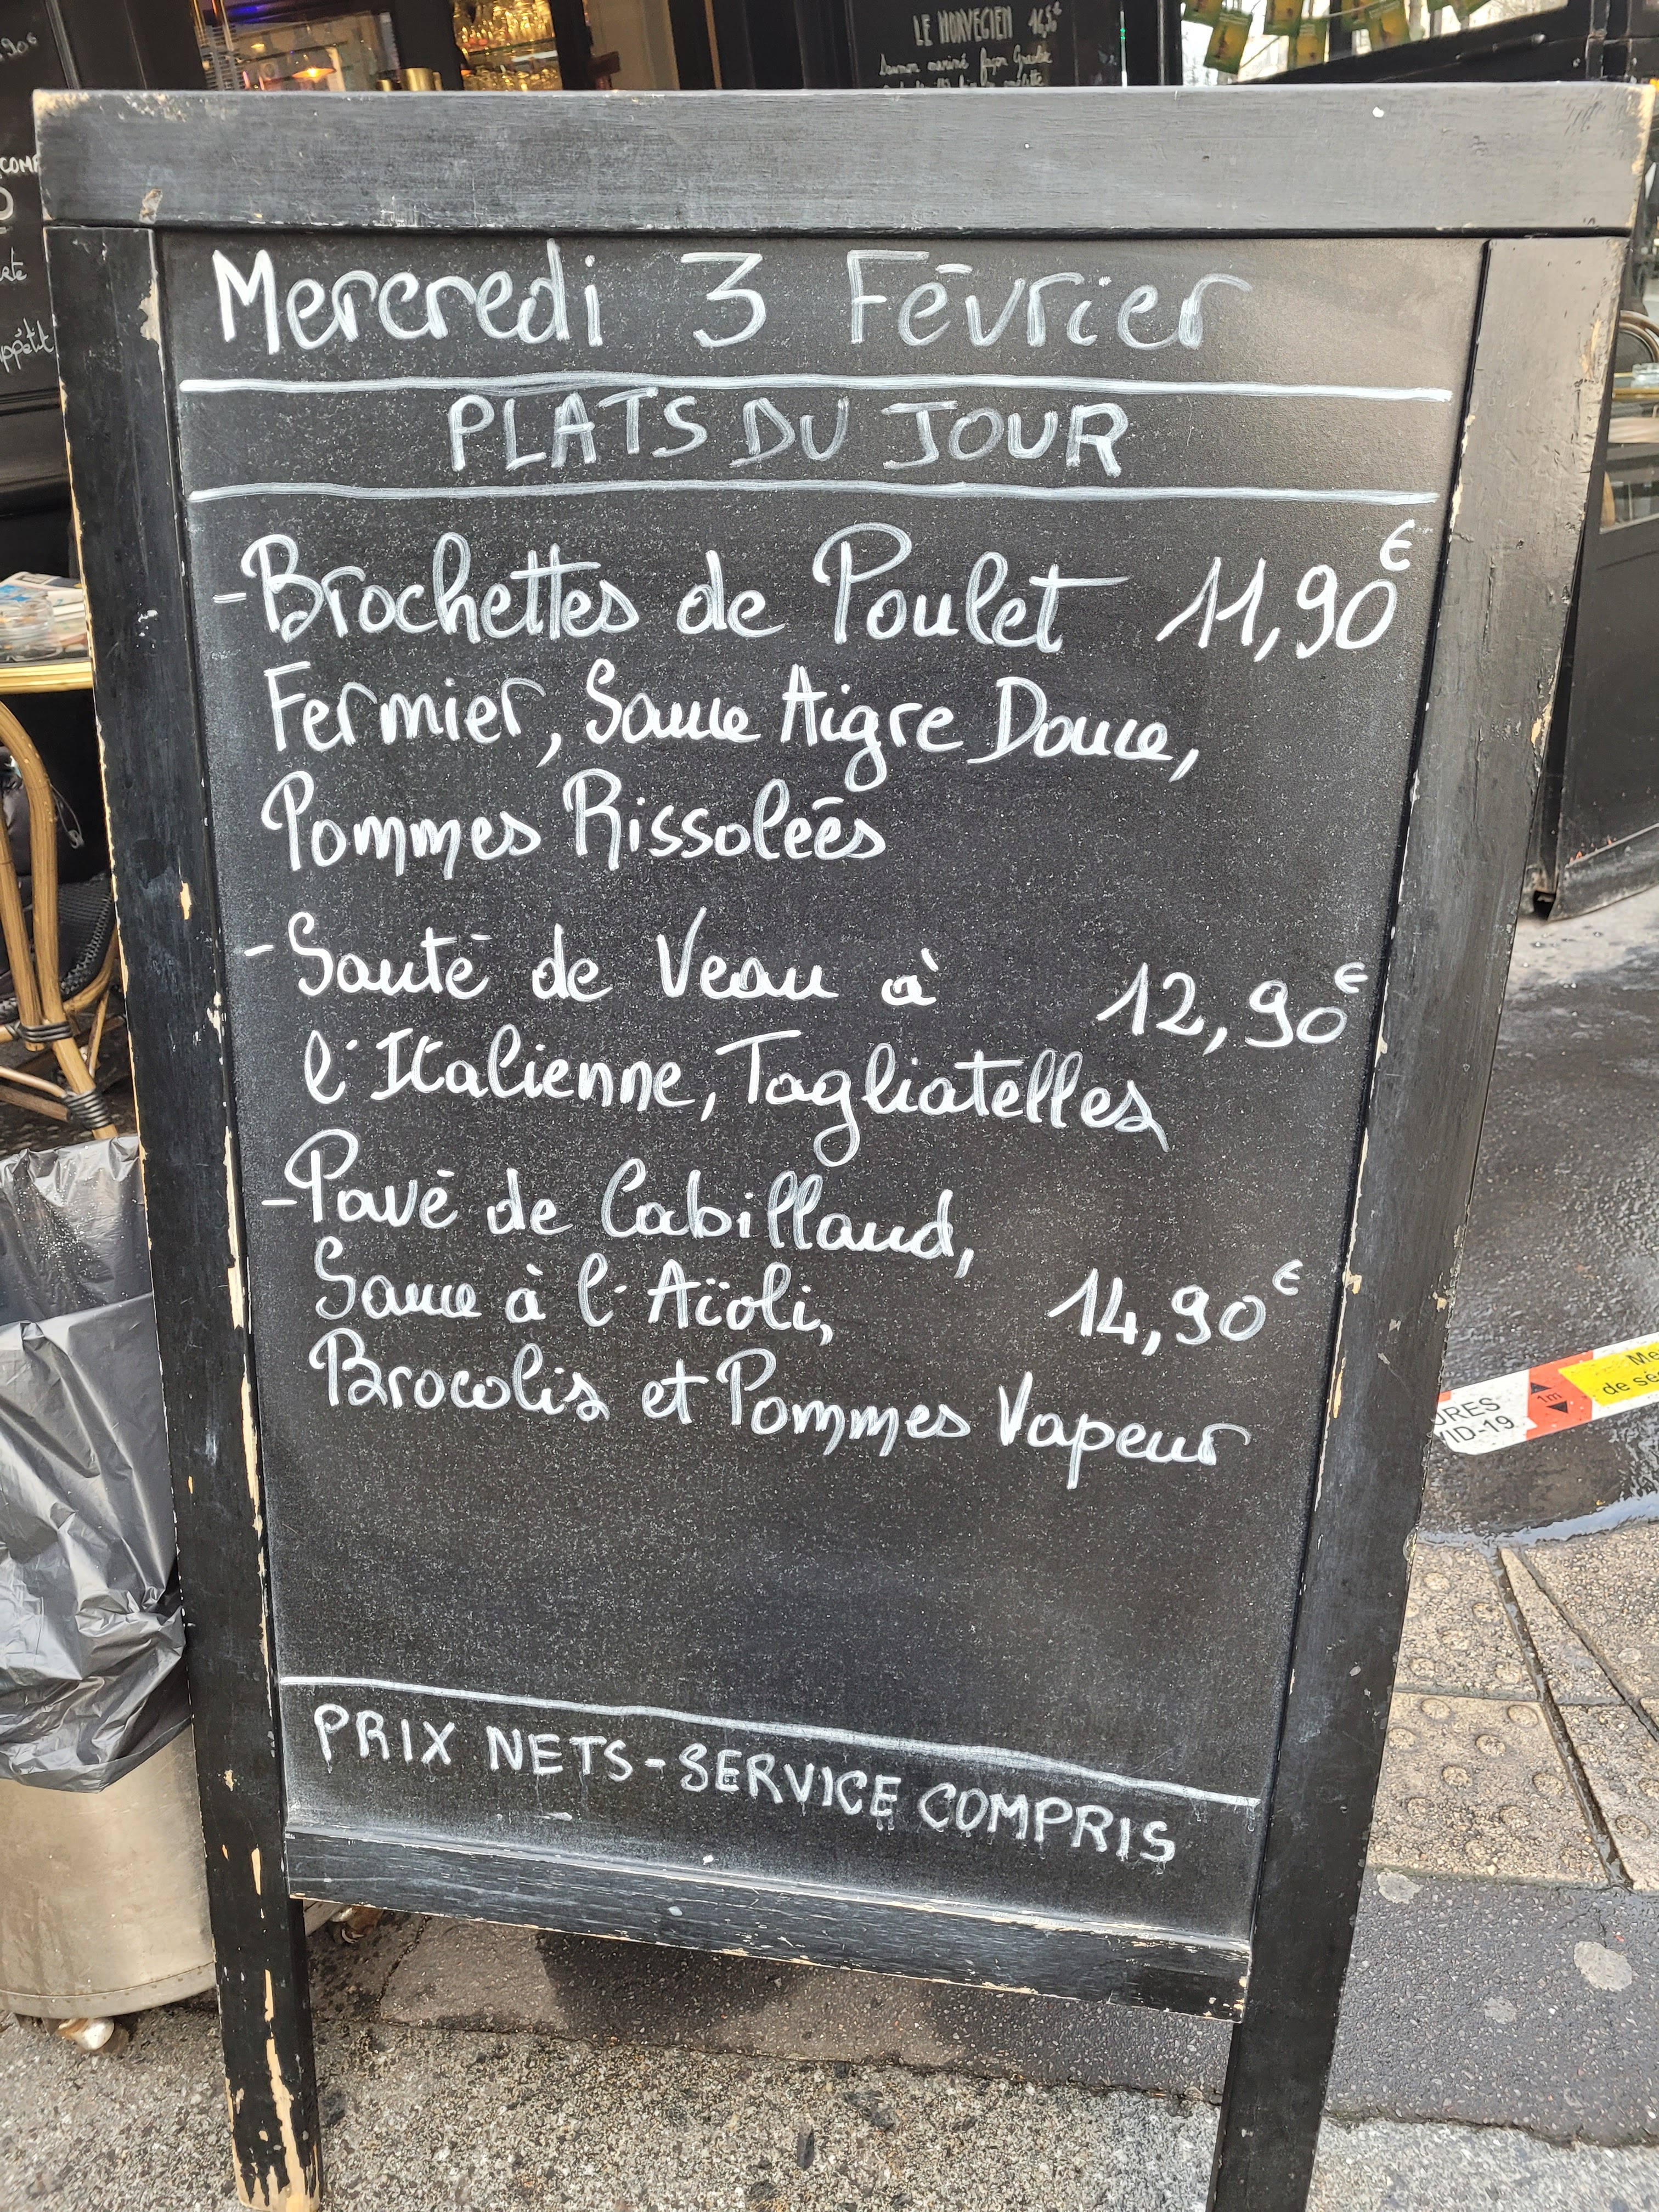 LE NORVEGIEN 16,5€
Saumon mariné façon Gravlax
,90€
COMP
appétit
Mercredi 3 Février
PLATS DU JOUR
-Brochettes de Poulet 11,90€
Fermier, Sauce Aigre Douce,
Pommes Rissoleés
-Sauté de Veau à 12,90€
l'Italienne, Tagliatelles
-Pavé de Cabillaud,
Sauce à l'Aïoli, 14,90€
Brocolis et Pommes Vapeur
PRIX NETS-SERVICE COMPRIS
URES
VID-19
1m
Me
de sé